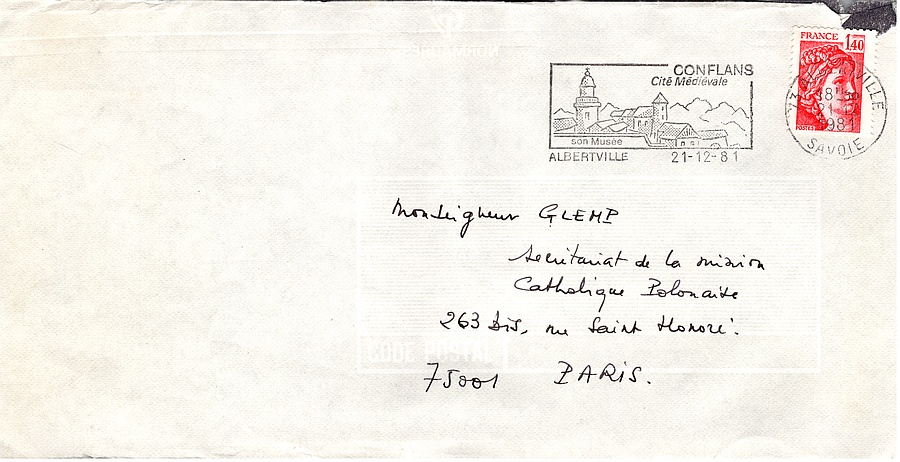 CONFLANS
Cité Médiévale
son Musée
ALBERTVILLE 21-12-81
FRANCE 1,40
POSTES
73 ALBERTVILLE
18H
21-12
1981
SAVOIE
Monseigneur GLEMP
Secrétariat de la mission
Catholique Polonaise
263 bis, rue Saint Honoré.
75001 PARIS.
CODE POSTAL